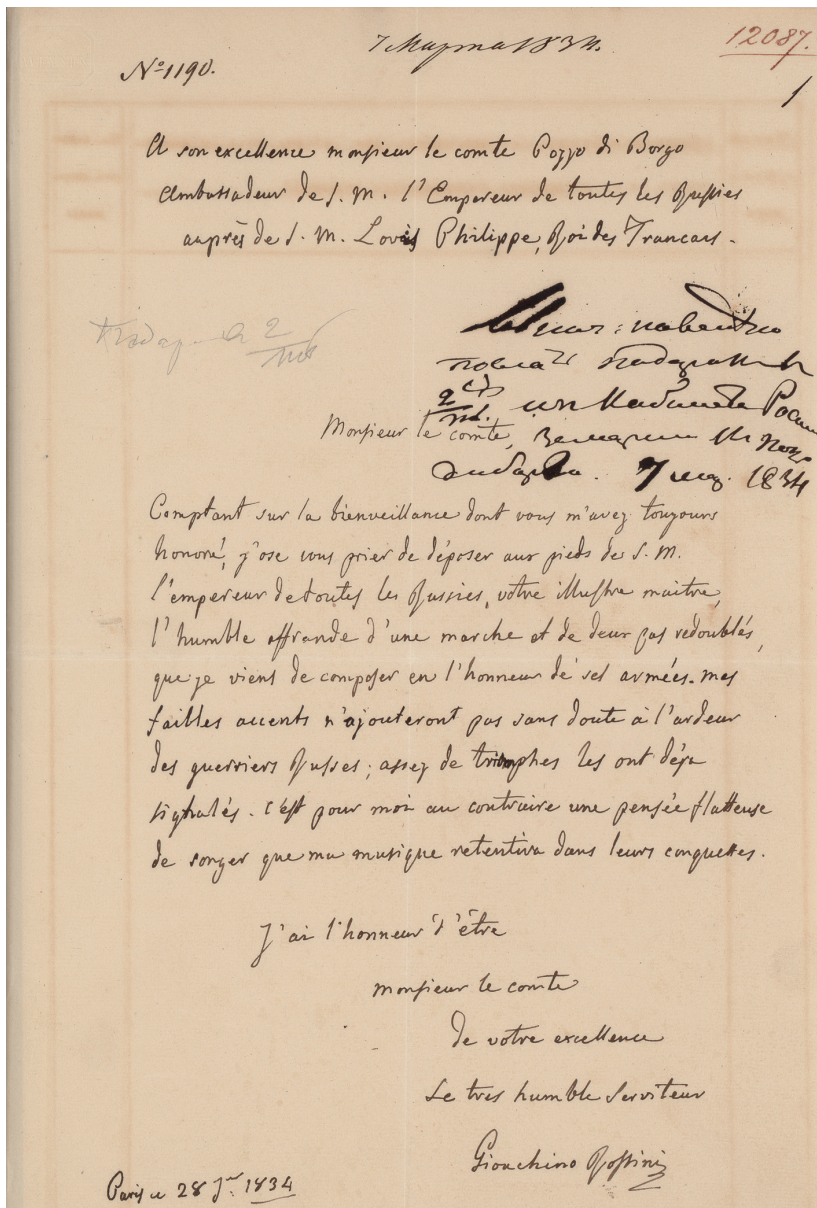 7 Марта 1834.
12087.
№ 1190.
1
A son excellence monsieur le comte Pozzo di Borgo
ambassadeur de S. M. l'Empereur de toutes les Russies
auprès de S. M. Louis Philippe, Roi des Francais.
2
повелено
2
7 1834
Monsieur le comte,
Comptant sur la bienveillance dont vous m'avez toujours
honoré, j'ose vous prier de déposer aux pieds de S. M.
l'empereur de toutes les Russies, votre illustre maitre,
l'humble offrande d'une marche et de deux pas redoublés,
que je viens de composer en l'honneur de ses armées. mes
faibles accents n'ajouteront pas sans doute à l'ardeur
des guerriers Russes; assez de triomphes les ont déja
signalés. c'est pour moi au contraire une pensée flatteuse
de songer que ma musique retentira dans leurs conquettes.
J'ai l'honneur d'être
monsieur le comte
de votre excellence
Le tres humble Serviteur
Gioachino Rossini
Paris ce 28 Jer. 1834